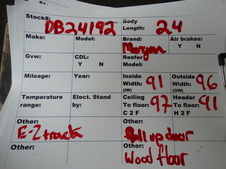 Stock#: DB24192 Body Length: 24
Make: Model: Brand: Morgan Air brakes: Y N
Gvw: CDL: Y N Reefer Model:
Mileage: Year: Inside Width: (IW) 91 Outside Width: (OW) 96
Temperature range: Elect. Stand by: Ceiling To floor: H 2 F 97 Header To floor: H 2 F 91
Other: E-Z track Other: Roll up door
Other: Wood floor